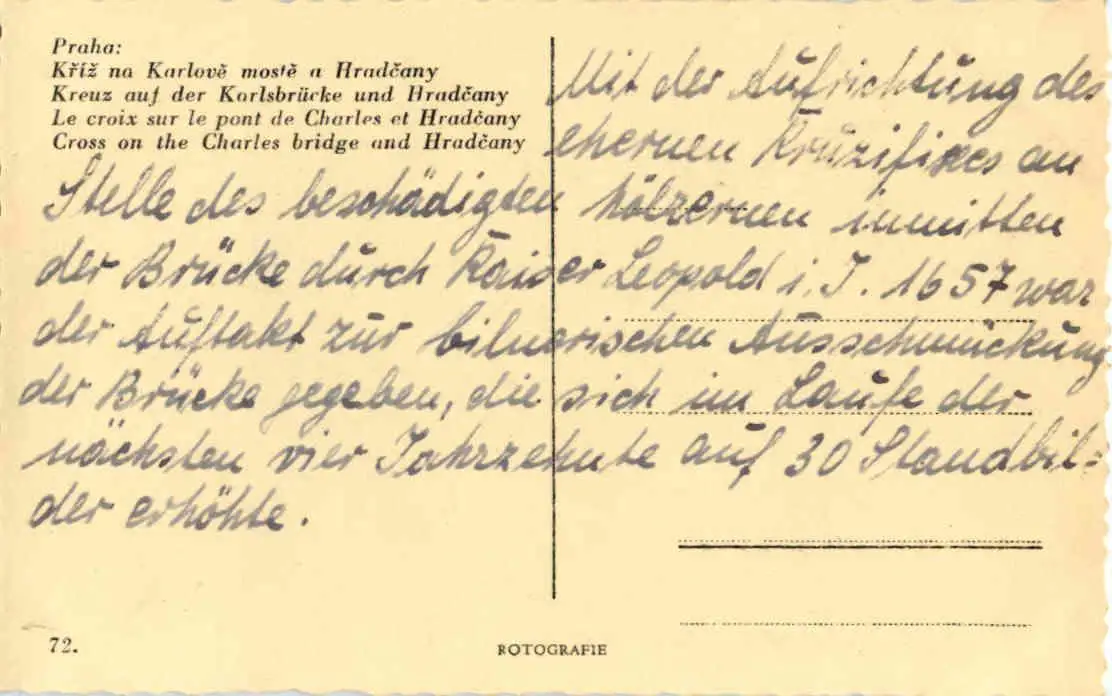 Praha:
Kříž na Karlově mostě a Hradčany
Kreuz auf der Karlsbrücke und Hradčany
Le croix sur le pont de Charles et Hradčany
Cross on the Charles bridge and Hradčany
Mit der Aufrichtung des
ehernen Kruzifixes an
Stelle des beschädigten hölzernen inmitten
der Brücke durch Kaiser Leopold i. J. 1657 war
der Auftakt zur bilnerischen Ausschmückung
der Brücke gegeben, die sich im Laufe der
nächsten vier Jahrzehnte auf 30 Standbil-
der erhöhte.
72.
ROTOGRAFIE